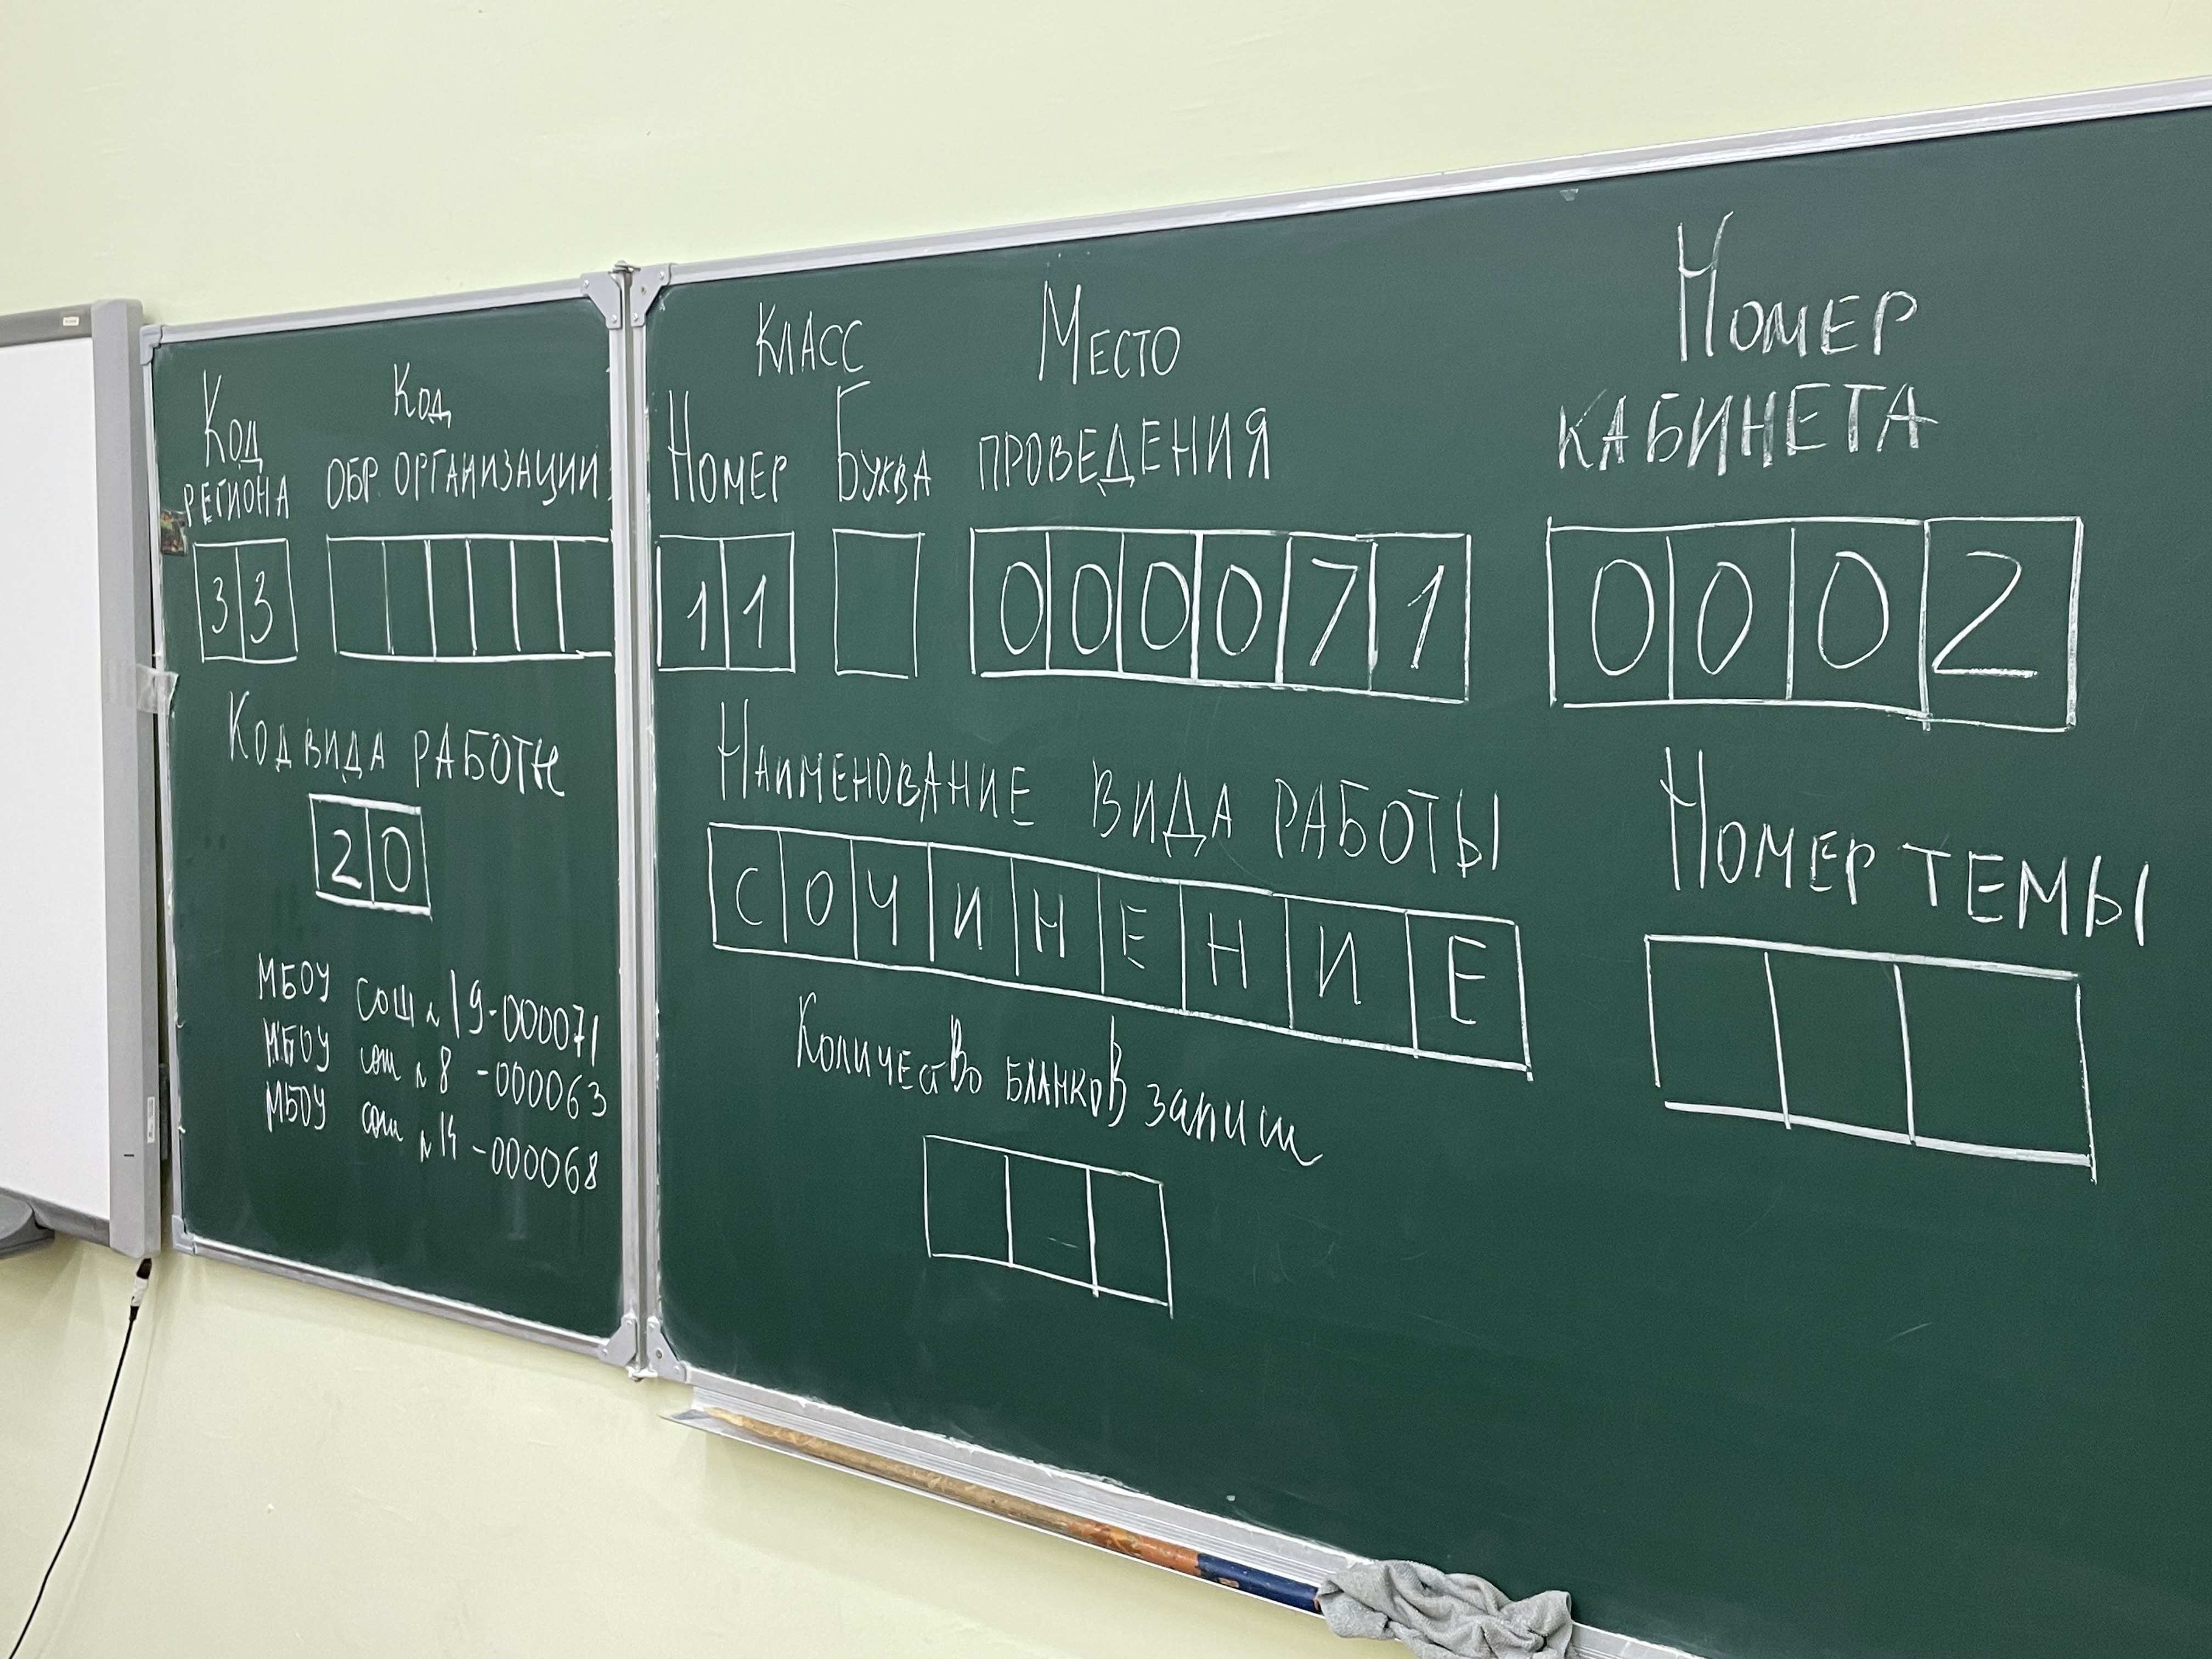 Код
региона
33
Код
обр. организации
Код вида работы
20
МБОУ СОШ № 19-000071
МБОУ сош № 8 -000063
МБОУ сош № 14 -000068
Класс
Номер Буква
11
Место
проведения
000071
Номер
кабинета
0002
Наименование вида работы
СОЧИНЕНИЕ
Номер темы
Количество бланков записи